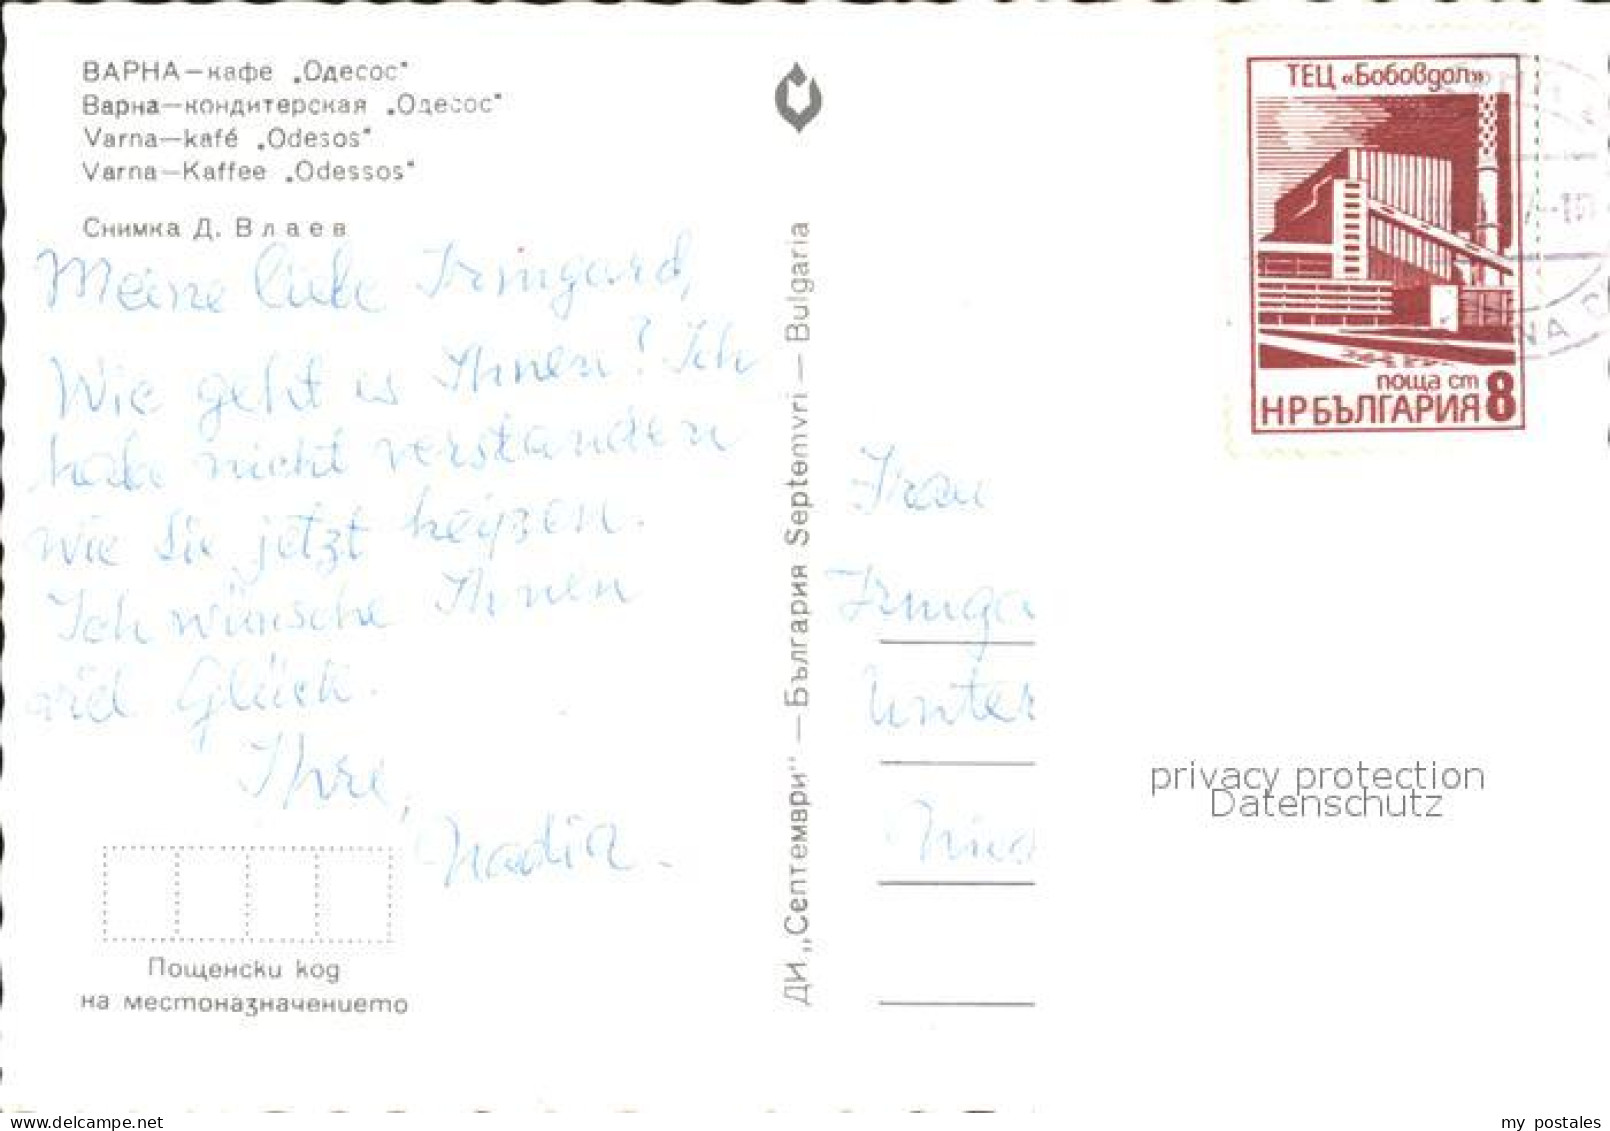 ВАРНА—кафе „Одесос“
Варна—кондитерская „Одесос“
Varna—kafé „Odesos“
Varna—Kaffee „Odessos“
Снимка Д. Влаев
Meine liebe Irmgard,
Wie geht es Ihnen? Ich
habe nicht verstanden
wie Sie jetzt heißen.
Ich wünsche Ihnen
viel Glück.
Ihre,
Nadia.
Пощенски код
на местоназначението
ДИ „Септември“ — България Septemvri — Bulgaria
ТЕЦ «Бобовдол»
поща ст 8
НР БЪЛГАРИЯ
Frau
Irmga
Unter
privacy protection
Datenschutz
www.delcampe.net
my_postales